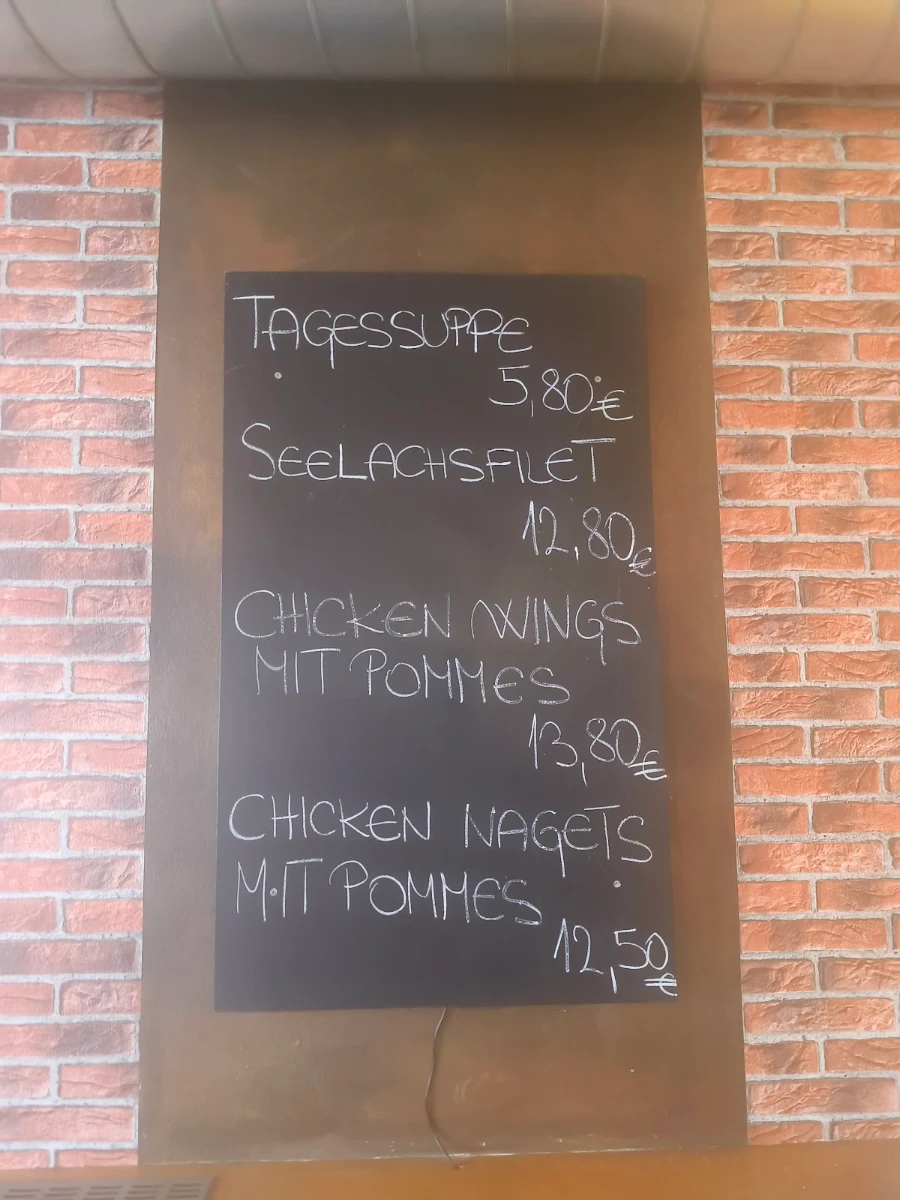 TAGESSUPPE
5,80€
SEELACHSFILET
12,80€
CHICKEN WINGS
MIT POMMES
13,80€
CHICKEN NAGETS
MIT POMMES
12,50€